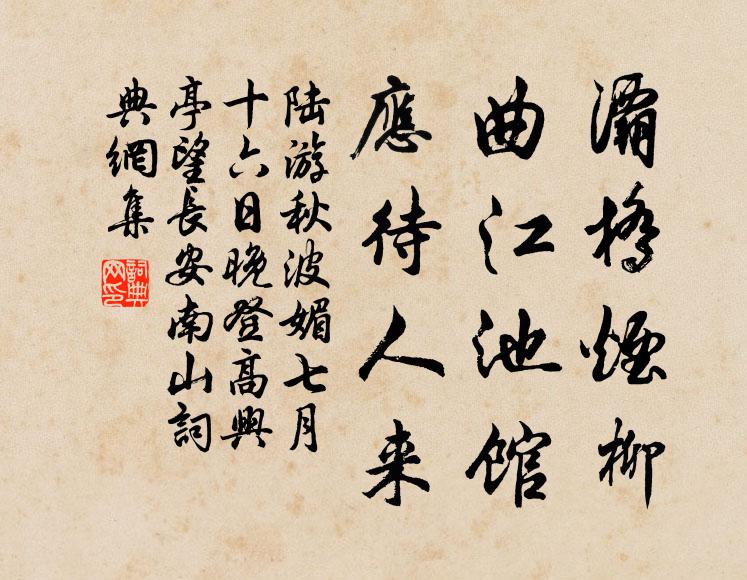 灞橋煙柳
曲江池館
應待人来
陆游秋波媚七月
十六日晚登高興
亭望長安南山詞
典網集
詞典
网印